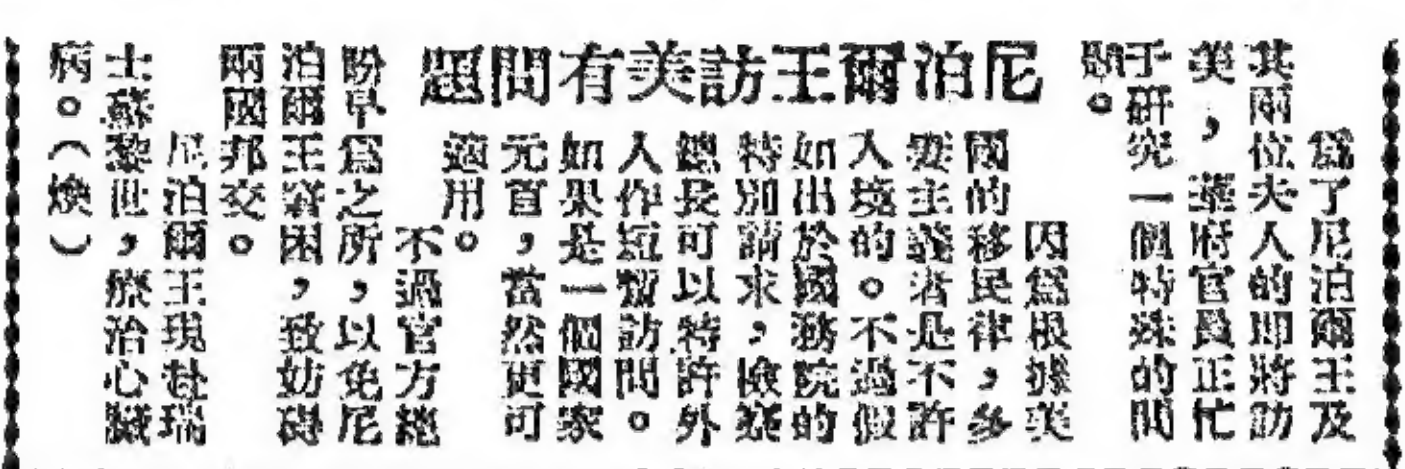 尼泊爾王訪美有問題
爲了尼泊爾王及
其兩位夫人的即將訪
美，華府官員正忙
于研究一個特殊的問
題。
因爲根據美
國的移民律，多
妻主義者是不許
入境的。不過假
如出於國務院的
特別請求，檢察
總長可以特許外
人作短暫訪問。
如果是一個國家
元首，當然更可
適用。
不過官方總
盼早爲之所，以免尼
泊爾王窘困，致妨碍
兩國邦交。
尼泊爾王現赴瑞
士蘇黎世，療治心臟
病。（煥）